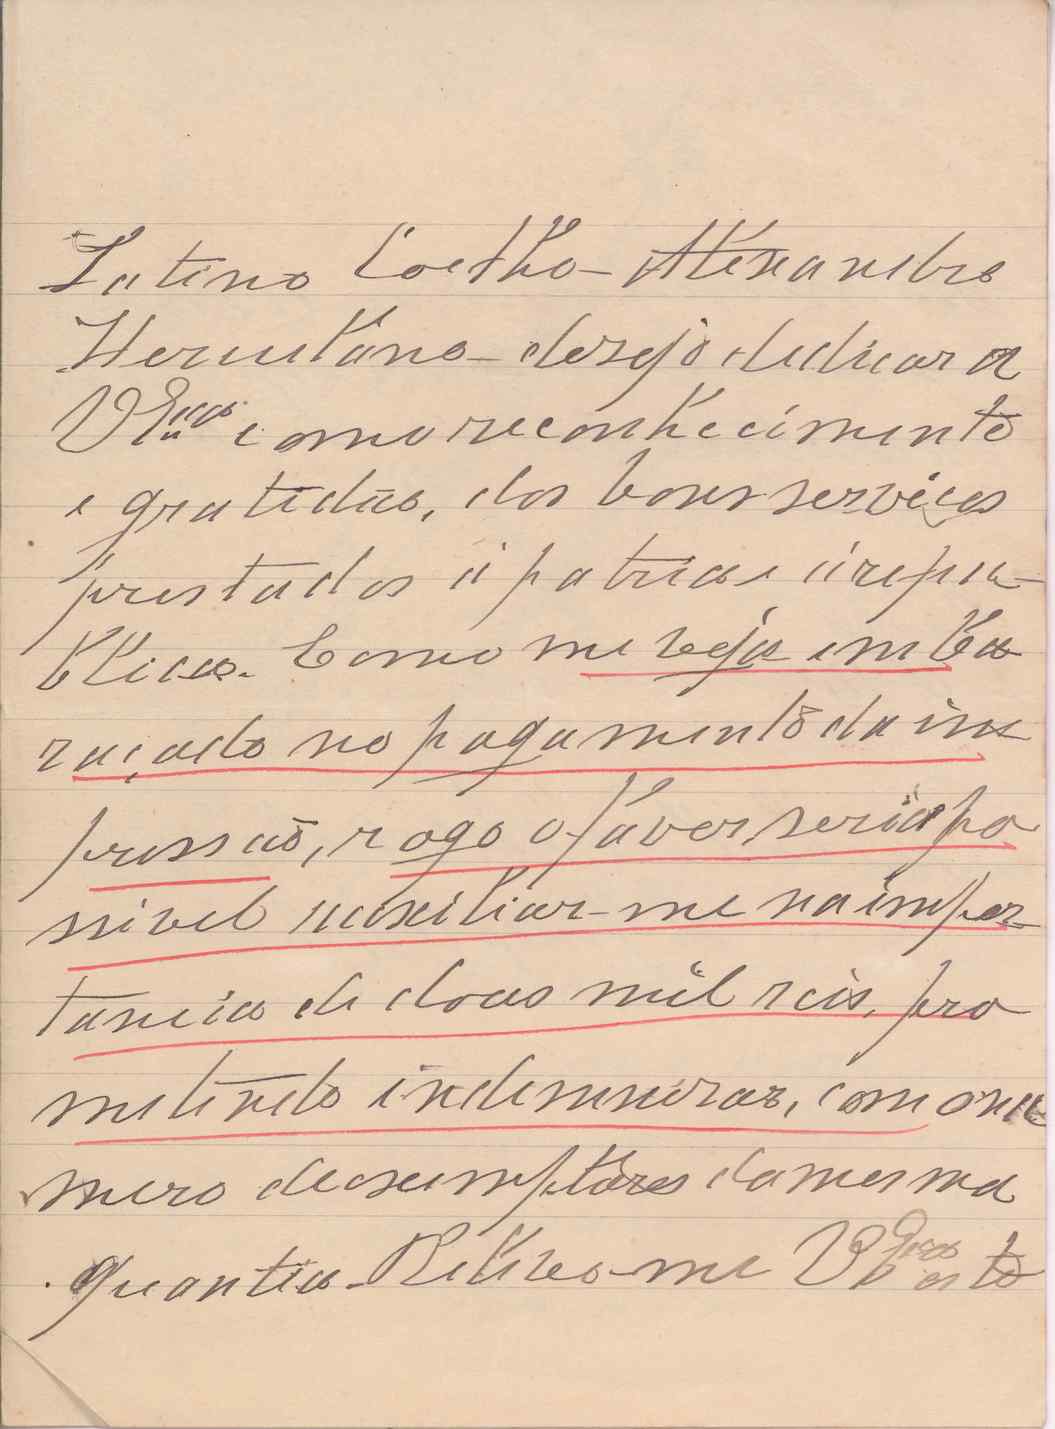 Latino Coelho - Alexandre
Herculano - desejo dedicar a
V Ex.cia como reconhecimento
e gratidão, dos bons serviços
prestados á patria e á repu-
blica. Como me veja emba
raçado no pagamento da im
pressão, rogo o favor seria po
ssivel auxiliar-me na impor-
tancia de doas mil reis, pro
metindo indemnizar, com o nu
mero de exemplares da mesma
quantia. Retiro-me V Ex.cia